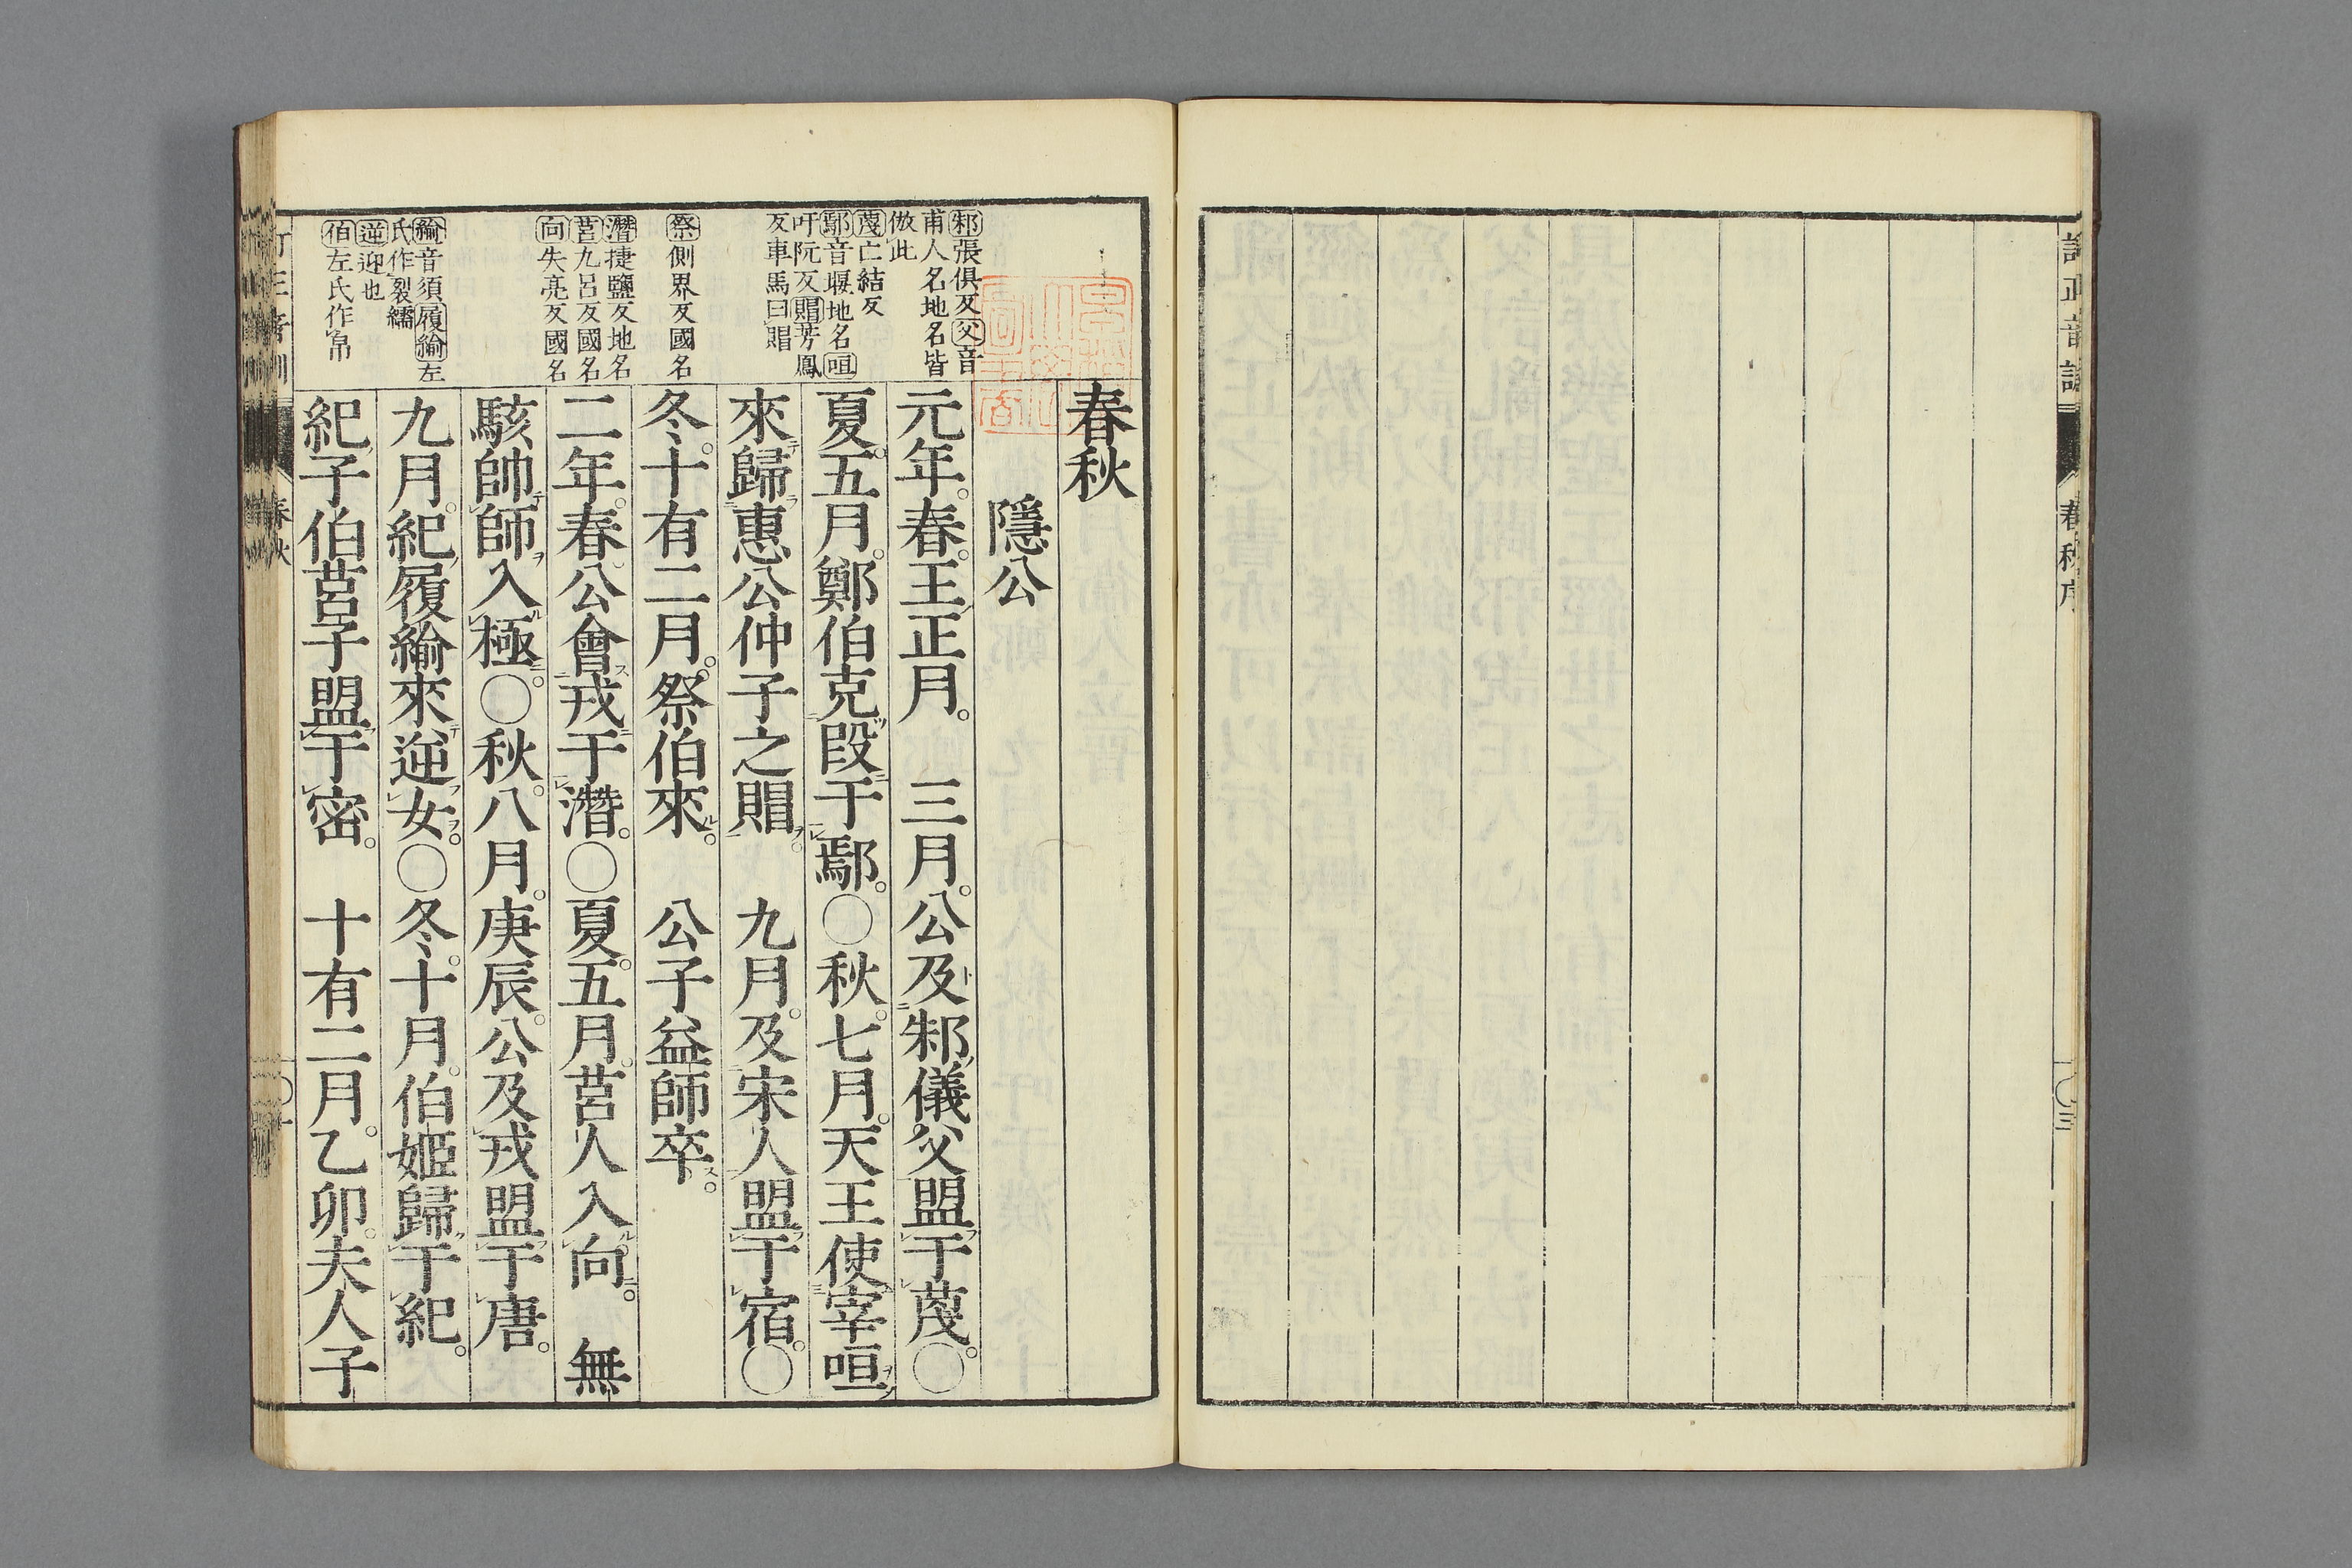 春秋序
三
春秋
隱公
元年。春。王正月。 三月。公及邾儀父盟于蔑。○
夏。五月。鄭伯克段于鄢。○秋。七月。天王使宰咺
來歸惠公仲子之賵。 九月。及宋人盟于宿。○
冬。十有二月。祭伯來。 公子益師卒。
二年。春。公會戎于潛。○夏。五月。莒人入向。 無
駭帥師入極。○秋。八月。庚辰。公及戎盟于唐。
九月。紀履緰來逆女。○冬。十月。伯姬歸于紀。
紀子伯莒子盟于密。 十有二月。乙卯。夫人子
邾張俱反父音
甫人名地名皆
倣此
蔑亡結反
鄢音堰地名咺
吁阮反賵芳鳳
反車馬曰賵
祭側界反國名
潛捷鹽反地名
莒九呂反國名
向失亮反國名
緰音須履緰左
氏作裂繻
逆迎也
伯左氏作帛
春秋